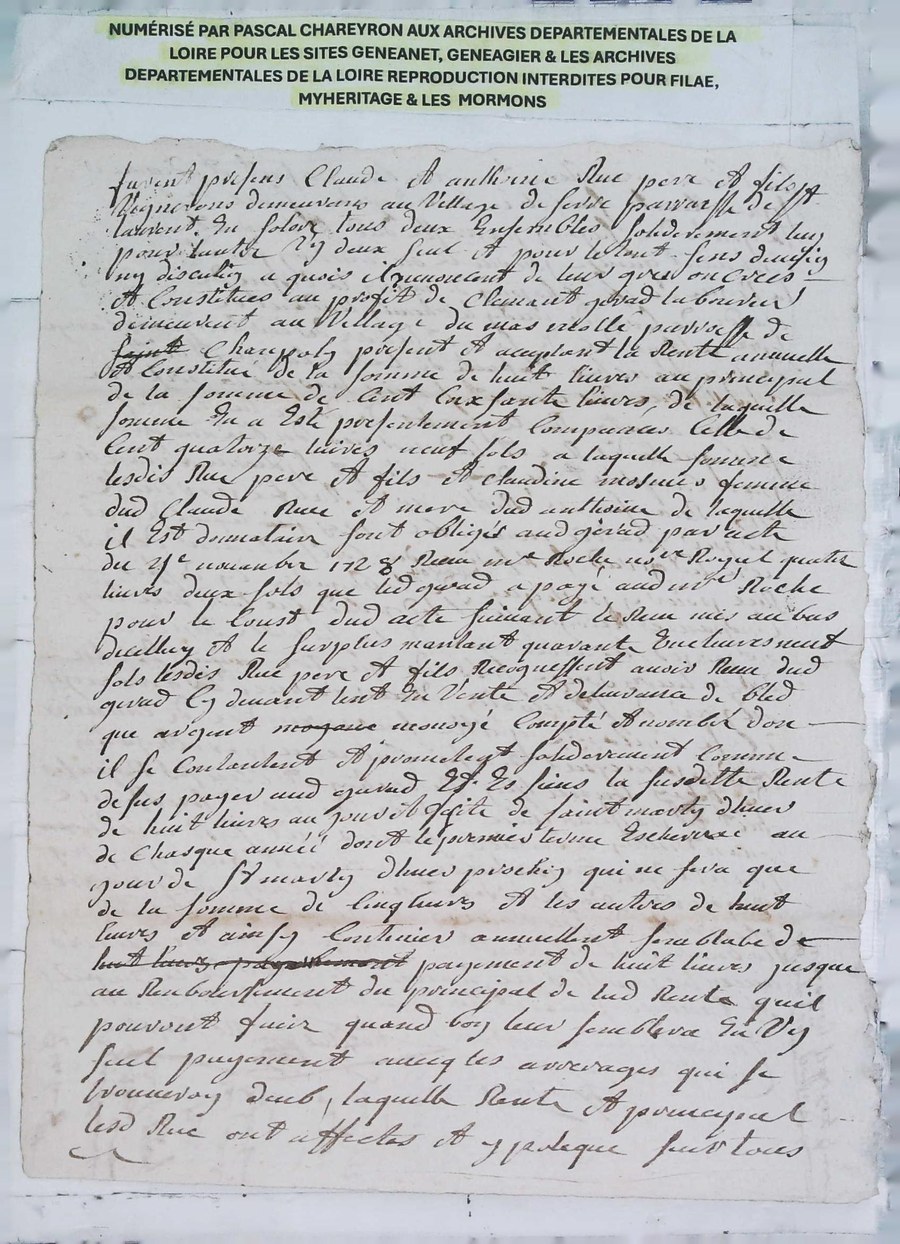 NUMÉRISÉ PAR PASCAL CHAREYRON AUX ARCHIVES DEPARTEMENTALES DE LA
LOIRE POUR LES SITES GENEANET, GENEAGIER & LES ARCHIVES
DEPARTEMENTALES DE LA LOIRE REPRODUCTION INTERDITES POUR FILAE,
MYHERITAGE & LES MORMONS
furent presens Claude et anthoine Rue pere et fils
Vignerons demeurans au Village de parroisse de St
laurent En solore tous deux Ensembles soliderement luy
pour lautre Un deux seul et pour le tout sens
ny discution a quois il renoncent de leur gres on Crees
et Constitues au profit de Clemant gerad laboureur
demeurent au Village du parroisse de
saint Champoly present et aceptant la Rente annuelle
et Constitué de la somme de huit livres au principal
de la somme de Cent soixsante livres, de laquelle
somme En a Esté presentement Compences Celle de
Cent quatorze livres neuf sols a laquelle somme
lesdis Rue pere et fils et claudine femme
dud Claude Rue et mere dud anthoine de laquelle
il Est donnataire sont obligés aud gerad par acte
du 21e novembre 1728 Receu me Roche nore Royal quatre
livres deux sols que led gerad a payé aud me Roche
pour le Coust dud acte suivant le Receu mis au bas
dicelluy et le surplus montant quarante Une livres neuf
sols lesdis Rue pere et fils Recognessent avoir Receu dud
gerad Cy devant tent En Vente et delivrance de bled
que argent monoyé Compté et nombré don
il se Contantent et prometent soliderement Comme
desus payer aud gerad Et Es siens la susdette Rente
de huit livres au jour et feste de saint marty dhiver
de Chasque année dont le premier terme Escherrae au
jour de St marty dhiver prochin qui ne sera que
de la somme de Cinq livres et les autres de huit
livres et ainsy Continuer annuellent semblable de
huit livres payement payement de huit livres jusque
au Remboursement du principal de lad Rente quil
pouront faire quand bon leur semblera En Un
seul payement avecq les arrerages qui se
trouveron deub, laquelle Rente et principal
lesd Rue ont affectes et ypoteque sur tous